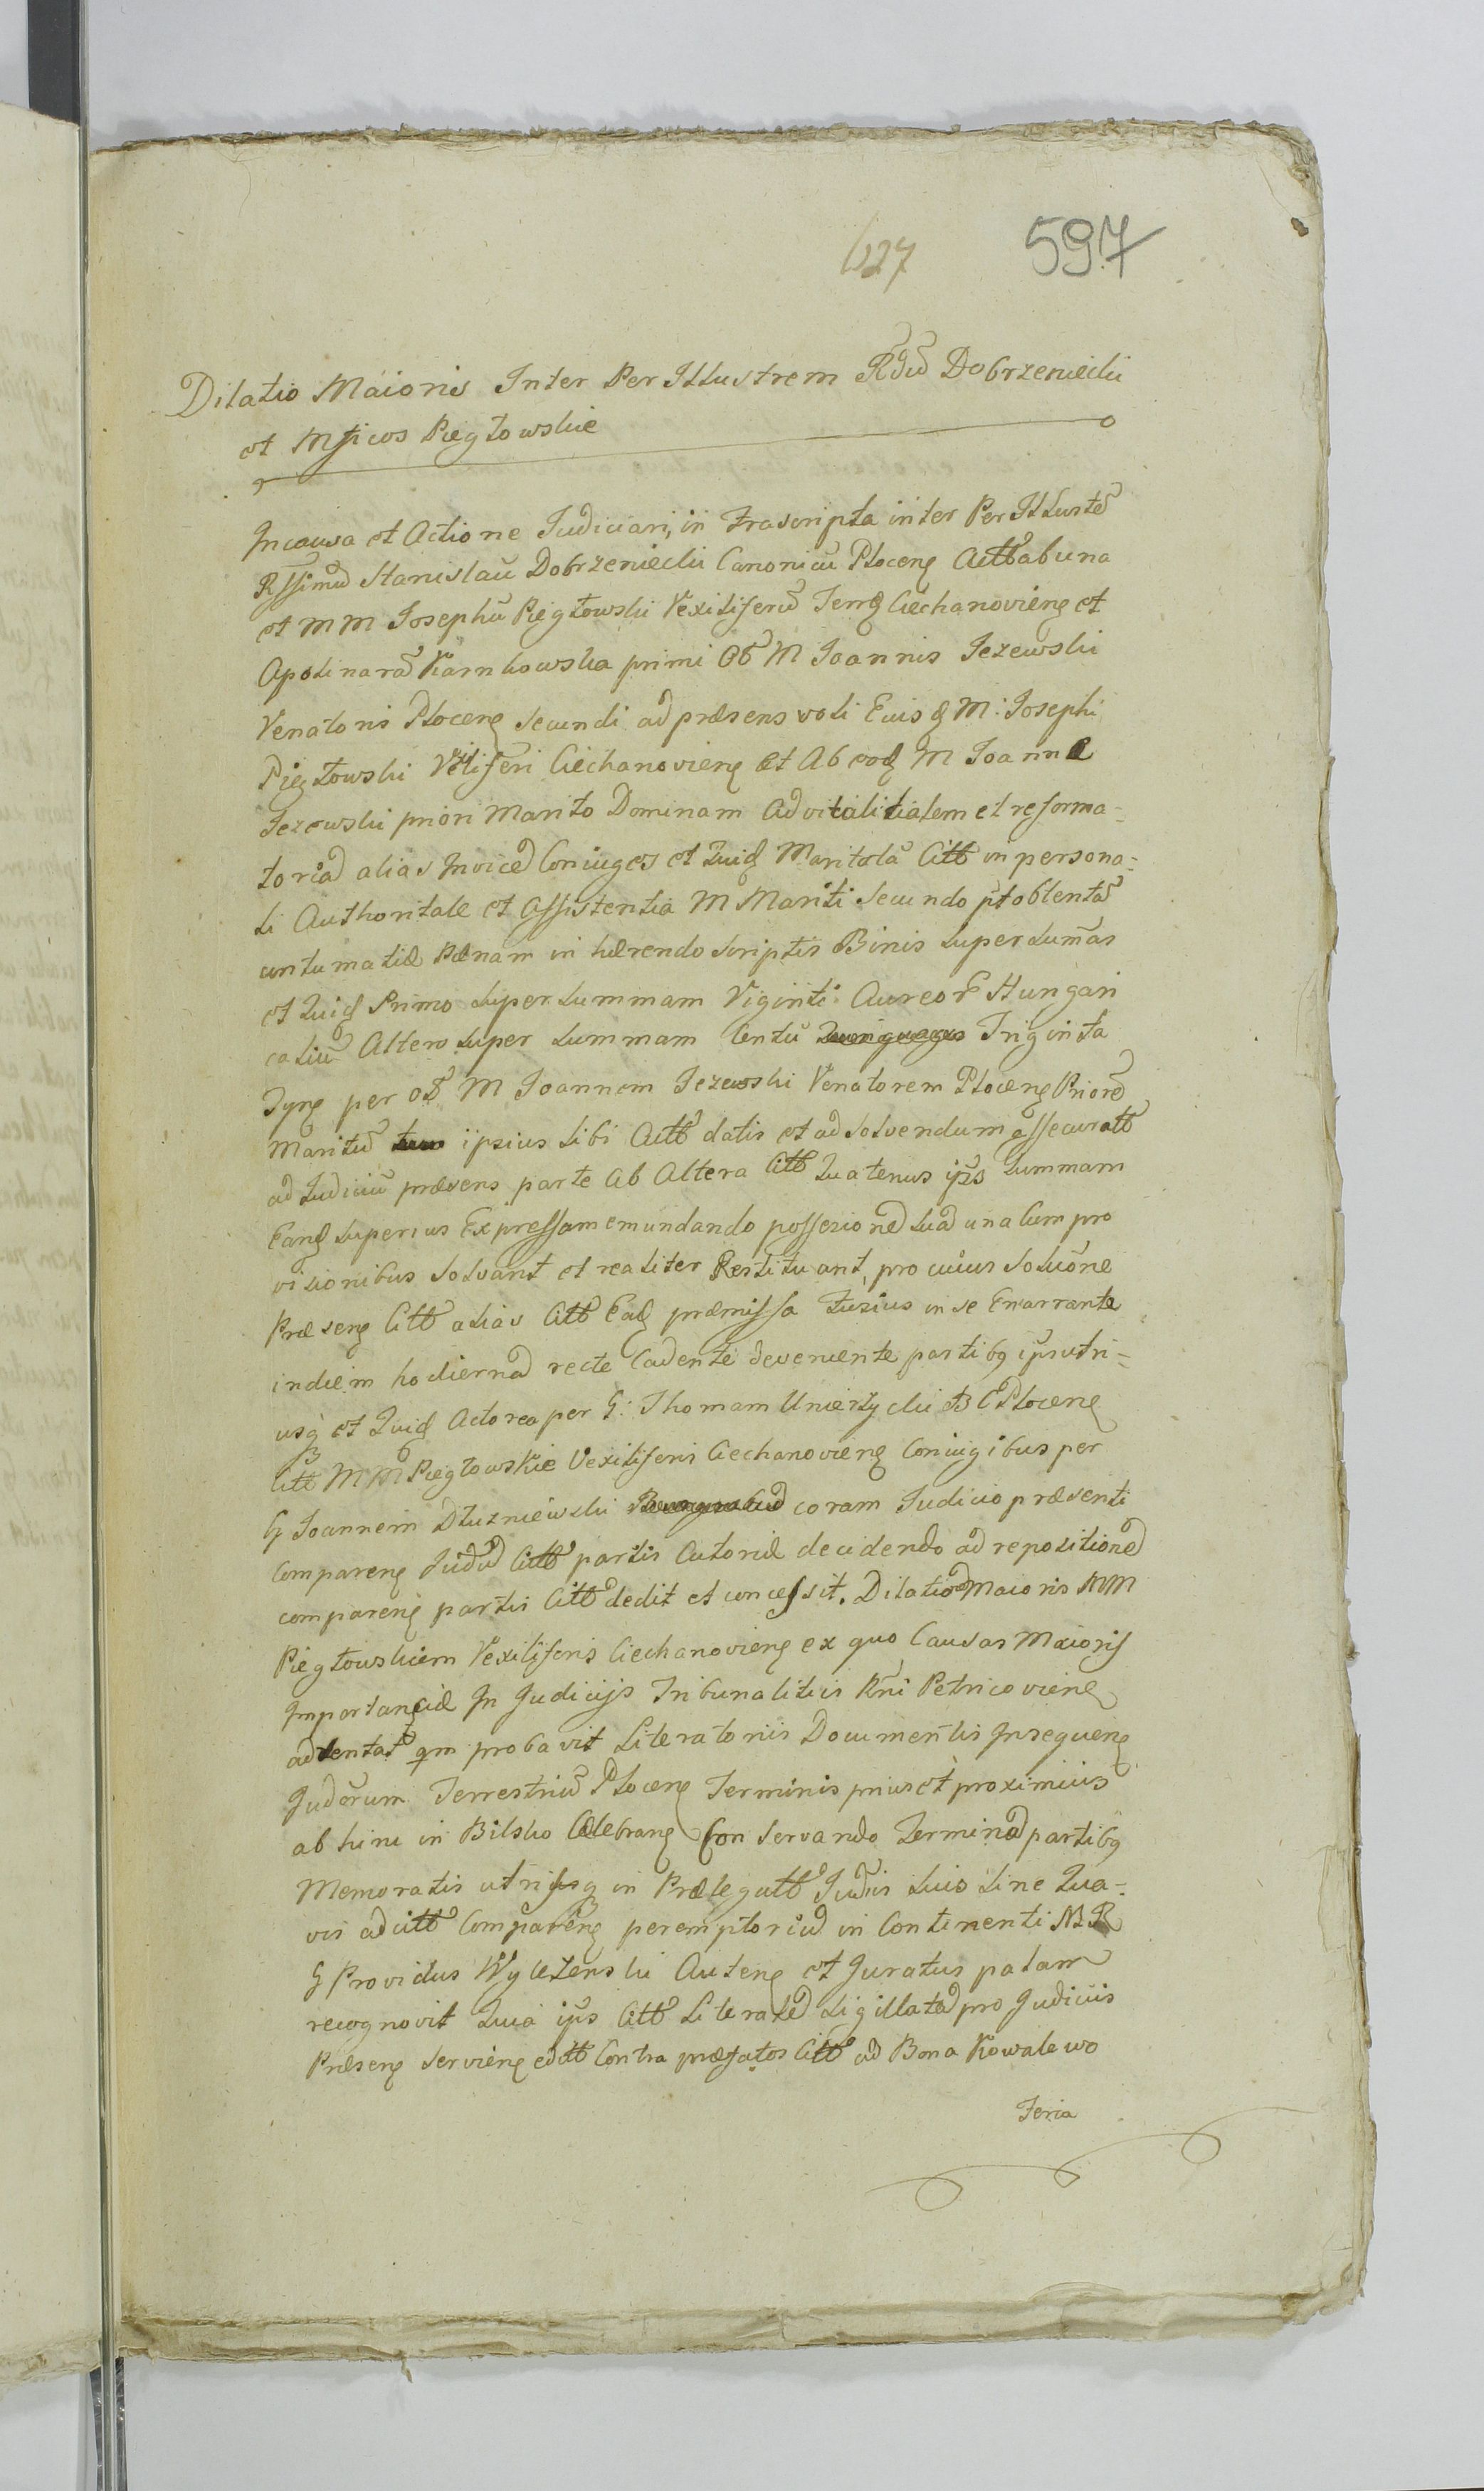 627 597
Dilatio Maioris Inter Per Illustrem Rđū Dobrzeniecki
et Mficos Piegłowskie
In causa et Actione Judiciari, in frascripta inter Per Illustē
Rssimū Stanislaū Dobrzeniecki Canonicū Plocenȩ Actt ab una
et MM Josephū Piegłowski Vexiliferū Terrȩ Ciechanovienȩ et
Apolinarā Karnkowska primi Ot M Joannis Jezewski
Venatoris Plocenȩ secundi ad præsens voti Euisd M: Josephi
Piegłowski Vexiliferi Ciechanovienȩ et Ab eod M Joanne
Jezewski priori Marito Dominam Advitalitialem et reforma-
toriā alias Invicē Coniuges et Quid Maritatā Citt in persona-
li Authoritate et Assistentia M Mariti secundo pt oblentā
contumatiæ Pænam in hærendo scriptis Binis super sumas
et Quid Primo super summam Viginti Aureor Hungari
caliū Altero super summam Centū Triginta
Tynȩ per Ot M Joannem Jezewski Venatorem Plocenȩ Priorē
Maritū ipsius sibi Actt datis et ad solvendum assecuratt
ad Judiciū præsens parte ab Altera Citt Quatenus ips summam
Eand superius Expressam emundando possesionē suā una cum pro
visionibus solvant et realiter Restituant, pro cuius solūone
Præsenȩ Citt alias Citt Ead præmissa fusius in se Enarrante
in diem hodiernā recte Cadente deveniente partibq ipis utri-
usq et Quid Actorea per G: Thomam Unierzycki B C Plocenȩ
Citt MM Piegłowskie Vexiliferis Ciechanovienȩ Coniugibus per
G Joannem Dłuzniewski coram Judicio præsenti
Comparenȩ Judū Citt partis Actoreæ decidendo ad repositionē
comparenȩ partis Citt dedit et concessit. Dilationē Maioris MM
Piegłowskiem Vexiliferis Ciechanovienȩ ex quo Causas Maioris
Importanciæ In Judicijs Tribunalitiis Rni Petricovienȩ
adtentat qm probavit Literatoriis Documentis Insequenȩ
Judorum Terrestriū Plocenȩ Terminis prius et proximius
ab hinc in Bilsko Celebranȩ Conservando Terminū partibq
Memoratis utrisqȩ in Prælegatt Judiis suis sine Qua-
vis ad citt Comparenȩ peremptoriū in Continenti MR
G Providus Wylezenski Autenȩ et Juratus palam
recognovit Quia ips Citt Literalē sigillatā pro Judiciis
Præsenȩ servienȩ editt Contra præfatos Citt ad Bona Kowalewo
Feria